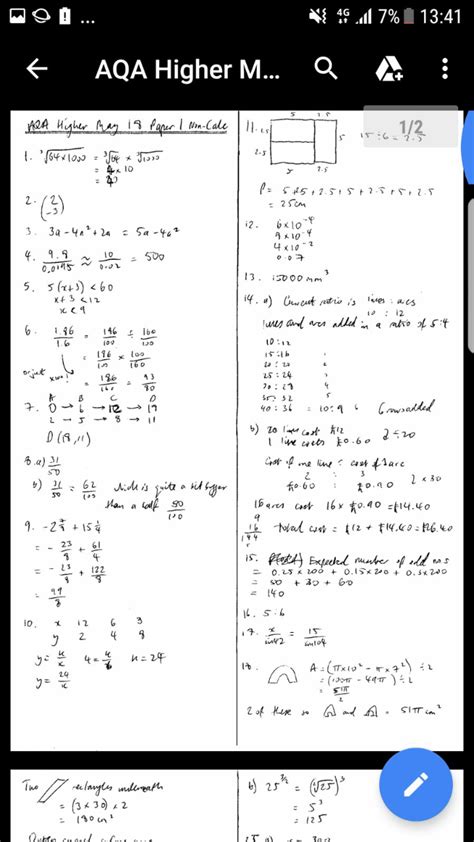 4G 7% 13:41
AQA Higher M...
1/2
AQA Higher May 18 Paper 1 Non-Calc
1. ³√64×1000 = ³√64 × ³√1000
= 4 × 10
= 40
2. (2
-3)
3. 3a - 4a² + 2a = 5a - 4a²
4. 9.8/0.0195 ≈ 10/0.02 = 500
5. 5(x+3) < 60
x+3 < 12
x < 9
6. 1.86/1.6 = 186/100 ÷ 160/100
= 186/100 × 100/160
= 186/160 = 93/80
A B C D
7. 0 → 6 → 12 → 18
2 → 5 → 8 → 11
D(18,11)
8. a) 31/50
b) 31/50 = 62/100 which is quite a bit bigger
than a half 50/100
9. -2 7/8 + 15 1/4
= -23/8 + 61/4
= -23/8 + 122/8
= 99/8
10. x 12 6 3
y 2 4 8
y = k/x 4 = k/6 k = 24
y = 24/x
11.
5 2.5
2.5 5
2.5
5 2.5
15 ÷ 6 = 2.5
P = 5+5+2.5+5+2.5+5+2.5
= 25cm
12. 6×10⁻⁴
9×10⁻⁴
4×10⁻²
0.07
13. 15000 mm³
14. a) Current ratio is lines : arcs
10 : 12
lines and arcs added in a ratio of 5:4
10:12
15:16
20:20
25:24
30:28
35:32
40:36 = 10:9 6 rows added
b) 20 lines cost £12
1 line costs £0.60 ÷20
Cost of one line : cost of 1 arc
2 : 3
£0.60 : £0.90 × 30
16 arcs cost 16 × £0.90 = £14.40
Total cost = £12 + £14.40 = £26.40
16
9
144
15. Expected number of odd nos
= 0.25×200 + 0.15×200 + 0.3×200
= 50 + 30 + 60
= 140
16. 5:6
17. x/sin42 = 15/sin104
18. A = (π×10² - π×7²) ÷ 2
= (100π - 49π) ÷ 2
= 51π/2
2 of these so and = 51π cm²
Two rectangles underneath
= (3×30) × 2
= 180cm²
b) 25^3/2 = (√25)³
= 5³
= 125